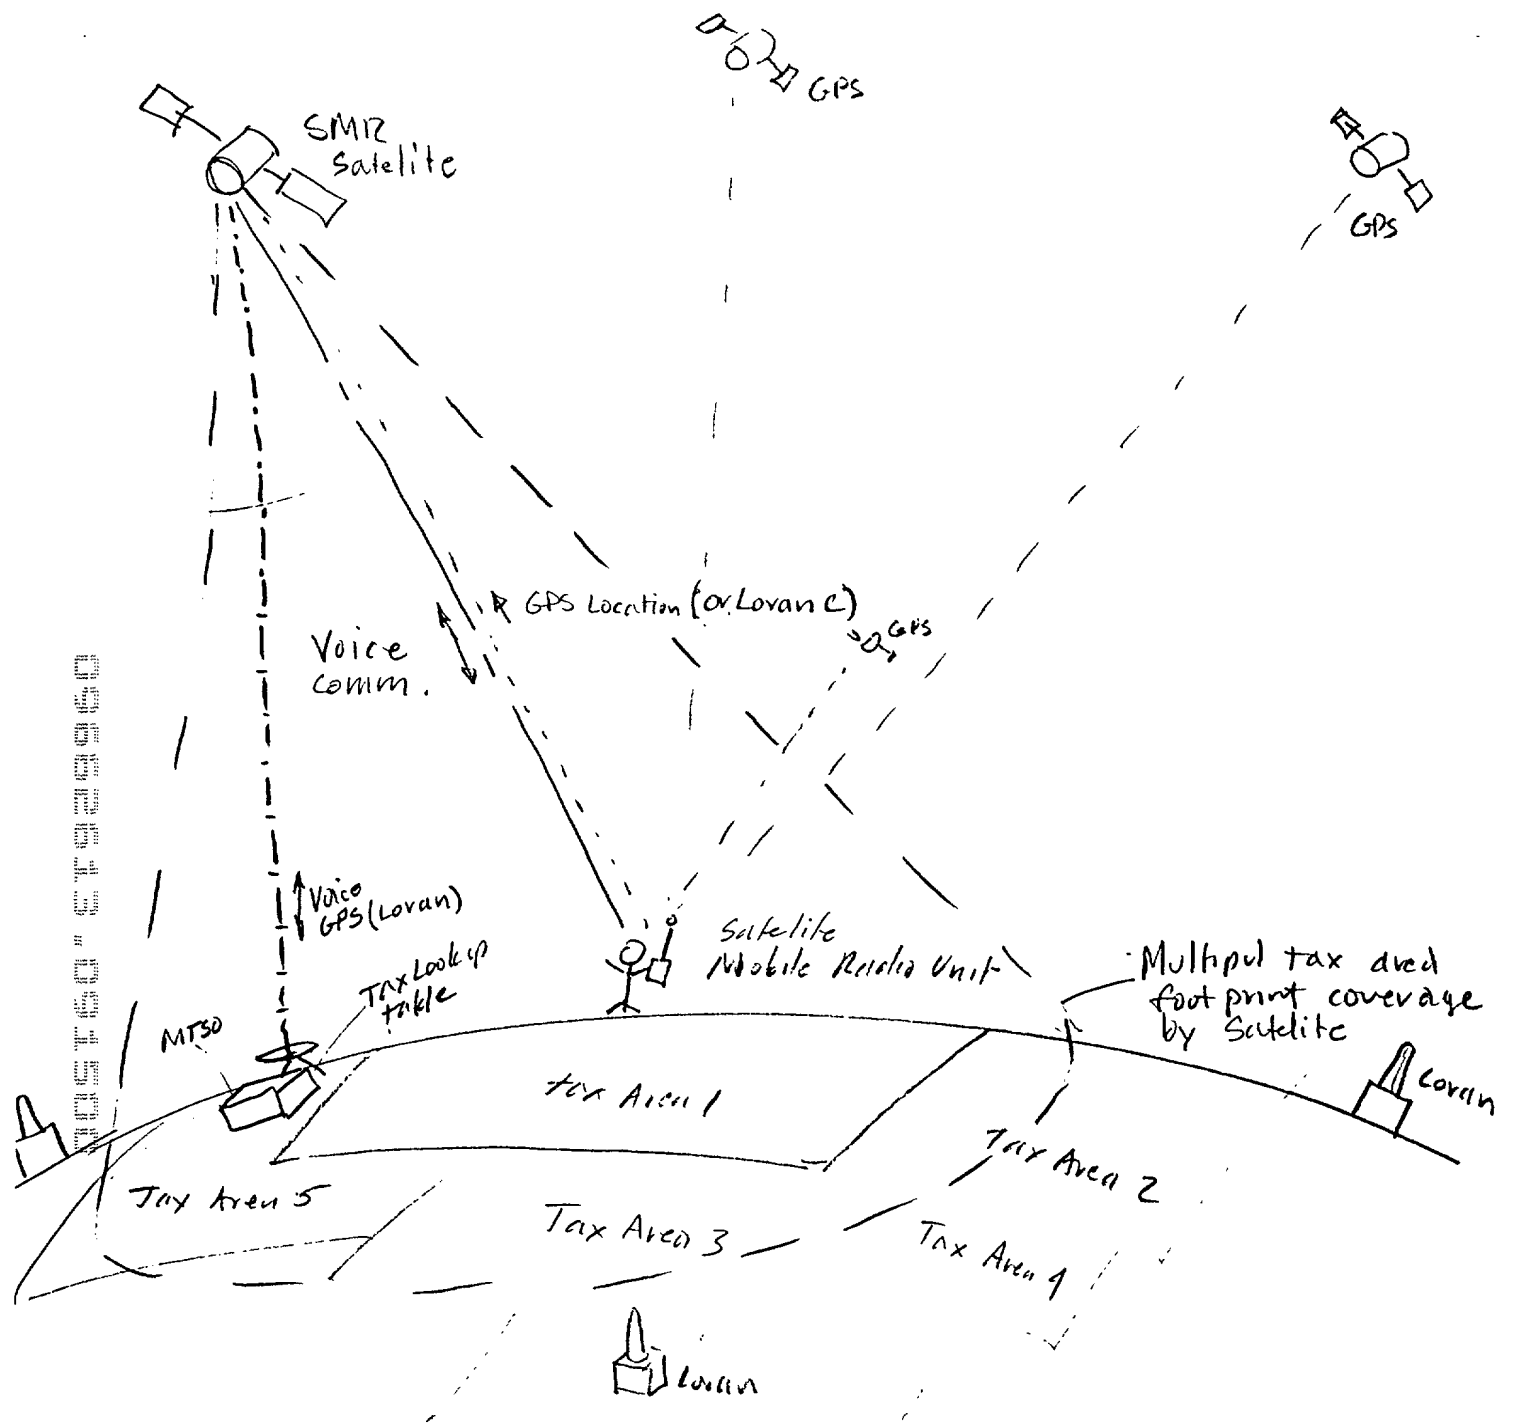 GPS
SMR
Satelite
GPS
GPS Location (or Loran C)
GPS
Voice
comm.
Voice
GPS (Loran)
Satelite
Mobile Radio Unit
Tax Lookup
table
MTSO
Multipul tax area
footprint coverage
by Satelite
Loran
tax Area 1
Tax Area 2
Tax Area 5
Tax Area 3
Tax Area 4
Loran
09662613.091500